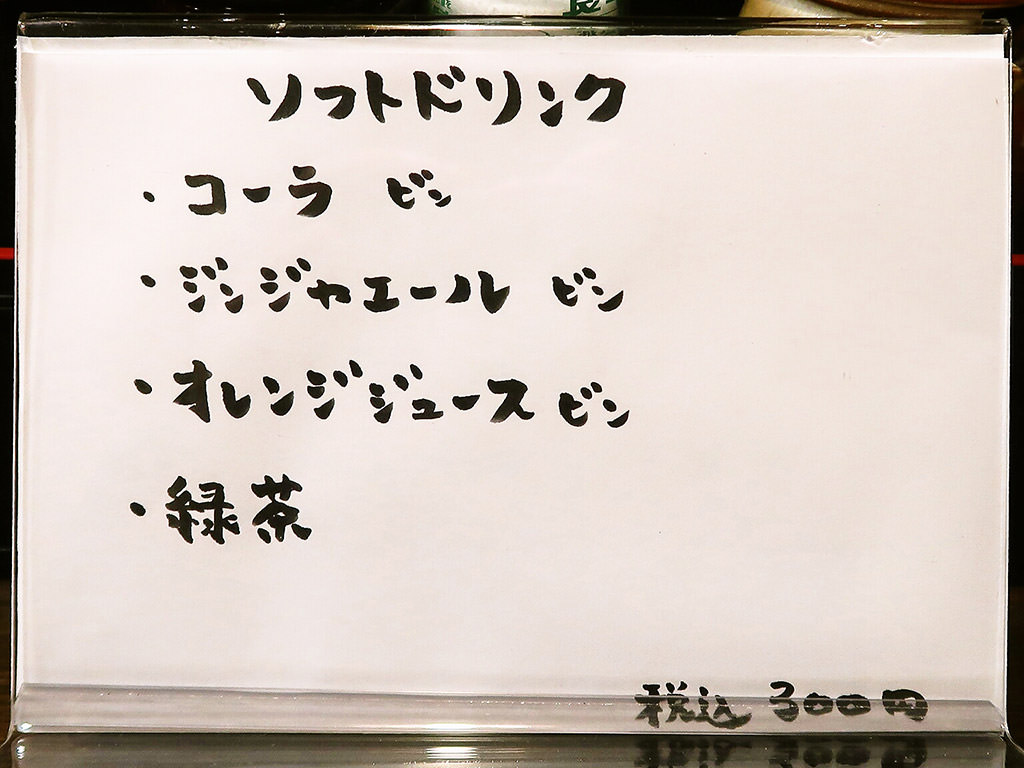 ソフトドリンク
・コーラ ビン
・ジンジャエール ビン
・オレンジジュース ビン
・緑茶
税込 300円